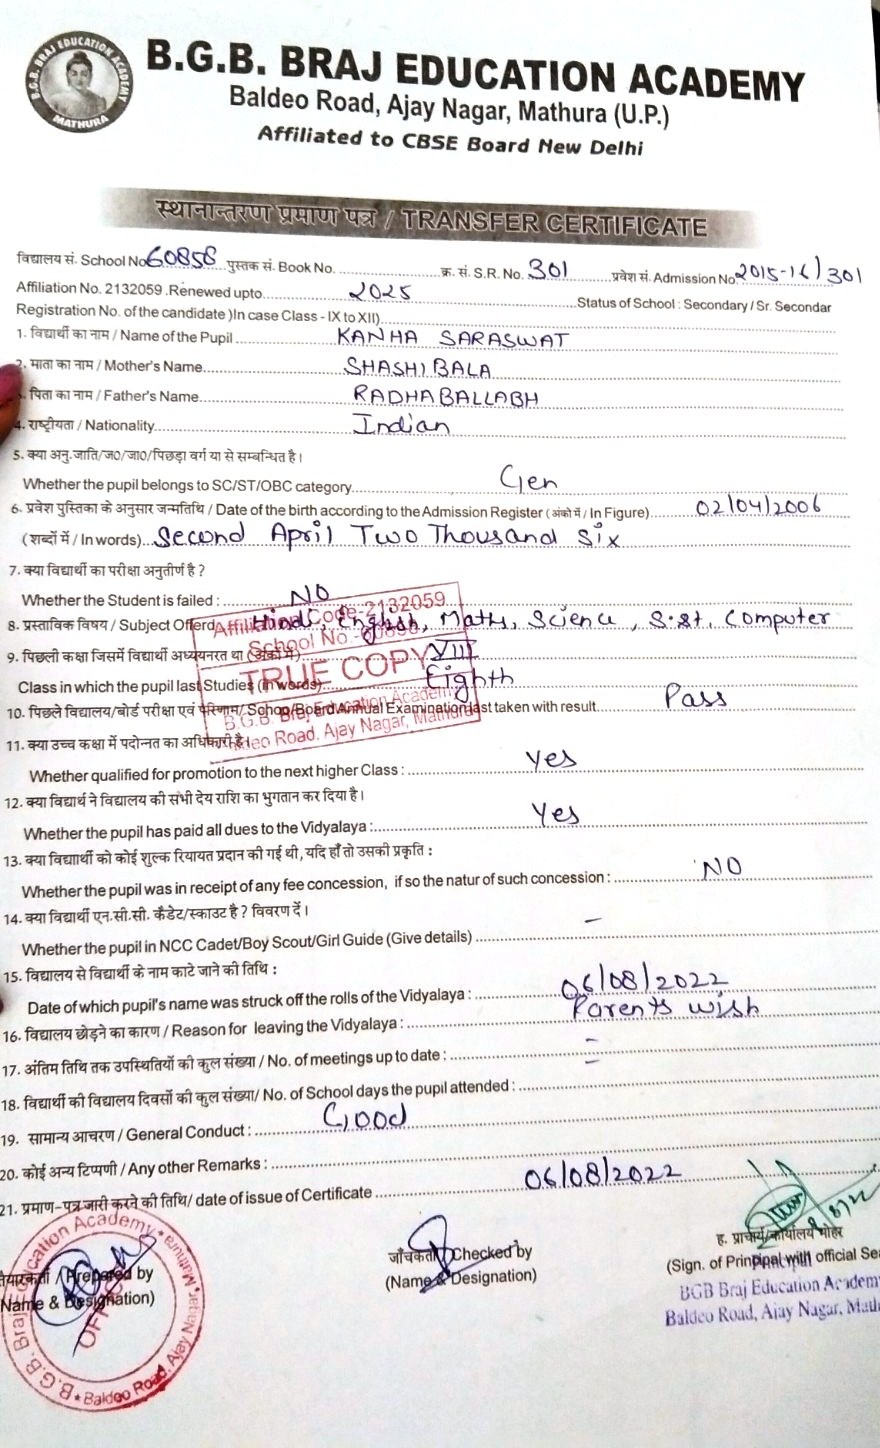 B.G.B. BRAJ EDUCATION ACADEMY MATHURA
B.G.B. BRAJ EDUCATION ACADEMY
Baldeo Road, Ajay Nagar, Mathura (U.P.)
Affiliated to CBSE Board New Delhi
स्थानान्तरण प्रमाण पत्र / TRANSFER CERTIFICATE
विद्यालय सं. School No 60858 पुस्तक सं. Book No. क्र. सं. S.R. No. 301 प्रवेश सं. Admission No. 2015-16/301
Affiliation No. 2132059 .Renewed upto 2025 Status of School : Secondary / Sr. Secondar
Registration No. of the candidate )In case Class - IX to XII)
1. विद्यार्थी का नाम / Name of the Pupil KANHA SARASWAT
2. माता का नाम / Mother's Name SHASHI BALA
3. पिता का नाम / Father's Name RADHA BALLABH
4. राष्ट्रीयता / Nationality Indian
5. क्या अनु.जाति/ज०/जा०/पिछड़ा वर्ग या से सम्बन्धित है।
Whether the pupil belongs to SC/ST/OBC category Gen
6. प्रवेश पुस्तिका के अनुसार जन्मतिथि / Date of the birth according to the Admission Register (अंको में / In Figure) 02/04/2006
(शब्दों में / In words) Second April Two Thousand Six
7. क्या विद्यार्थी का परीक्षा अनुतीर्ण है ?
Whether the Student is failed : NO
8. प्रस्ताविक विषय / Subject Offerd Hindi, English, Maths, Science, S.st, Computer
9. पिछली कक्षा जिसमें विद्यार्थी अध्ययनरत था (अंको में) VIII
Class in which the pupil last Studies (In words) Eighth
10. पिछले विद्यालय/बोर्ड परीक्षा एवं परिणाम/ School/Board Annual Examination last taken with result Pass
Affiliation Code-2132059
School No -60858
TRUE COPY
B.G.B. Braj Education Academy
Baldeo Road, Ajay Nagar, Mathura
11. क्या उच्च कक्षा में पदोन्नत का अधिकारी है।
Whether qualified for promotion to the next higher Class : Yes
12. क्या विद्यार्थ ने विद्यालय की सभी देय राशि का भुगतान कर दिया है।
Whether the pupil has paid all dues to the Vidyalaya : Yes
13. क्या विद्यार्थी को कोई शुल्क रियायत प्रदान की गई थी, यदि हाँ तो उसकी प्रकृति :
Whether the pupil was in receipt of any fee concession, if so the natur of such concession : NO
14. क्या विद्यार्थी एन.सी.सी. कैडेट/स्काउट है ? विवरण दें।
Whether the pupil in NCC Cadet/Boy Scout/Girl Guide (Give details) –
15. विद्यालय से विद्यार्थी के नाम काटे जाने की तिथि :
Date of which pupil's name was struck off the rolls of the Vidyalaya : 06/08/2022
16. विद्यालय छोड़ने का कारण / Reason for leaving the Vidyalaya : Parents wish
17. अंतिम तिथि तक उपस्थितियों की कुल संख्या / No. of meetings up to date : –
18. विद्यार्थी की विद्यालय दिवसों की कुल संख्या/ No. of School days the pupil attended : –
19. सामान्य आचरण / General Conduct : Good
20. कोई अन्य टिप्पणी / Any other Remarks :
21. प्रमाण-पत्र जारी करने की तिथि/ date of issue of Certificate 06/08/2022
तैयारकर्ता / Prepared by
Name & Designation)
B.G.B. Braj Education Academy Baldeo Road, Ajay Nagar, Mathura
जाँचकर्ता / Checked by
(Name & Designation)
ह. प्राचार्य/कार्यालय मोहर
(Sign. of Principal with official Sea
Principal
BGB Braj Education Academ
Baldeo Road, Ajay Nagar, Math